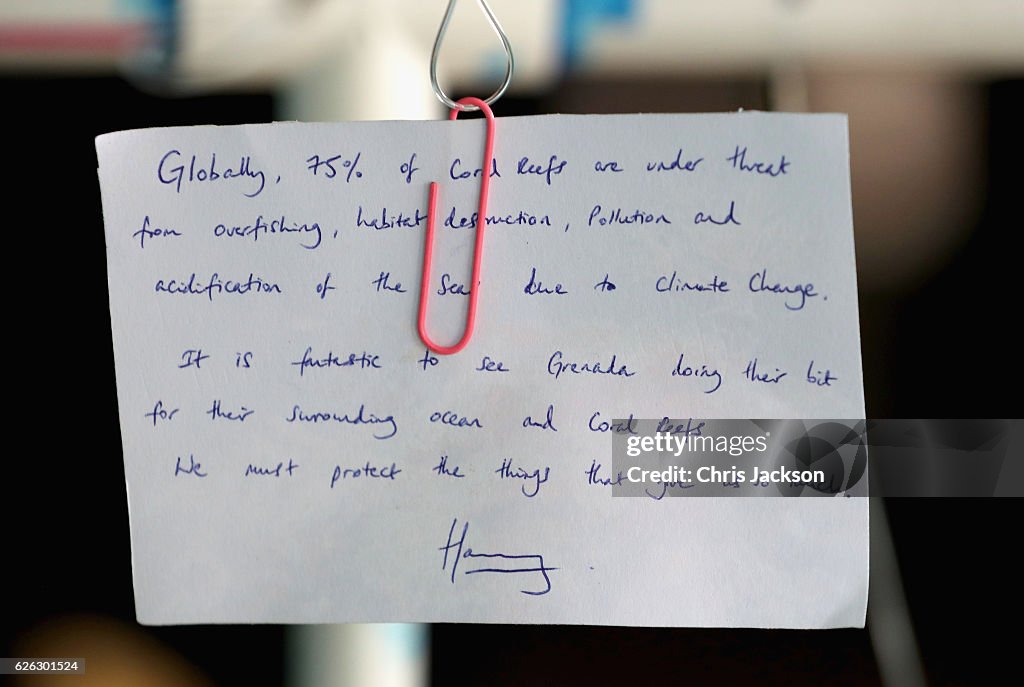 Globally, 75% of Coral Reefs are under threat
from overfishing, habitat destruction, Pollution and
acidification of the Sea due to Climate Change.
It is fantastic to see Grenada doing their bit
for their surrounding ocean and Coral Reefs
We must protect the things that give us so much.
Harry
gettyimages®
Chris Jackson
626301524